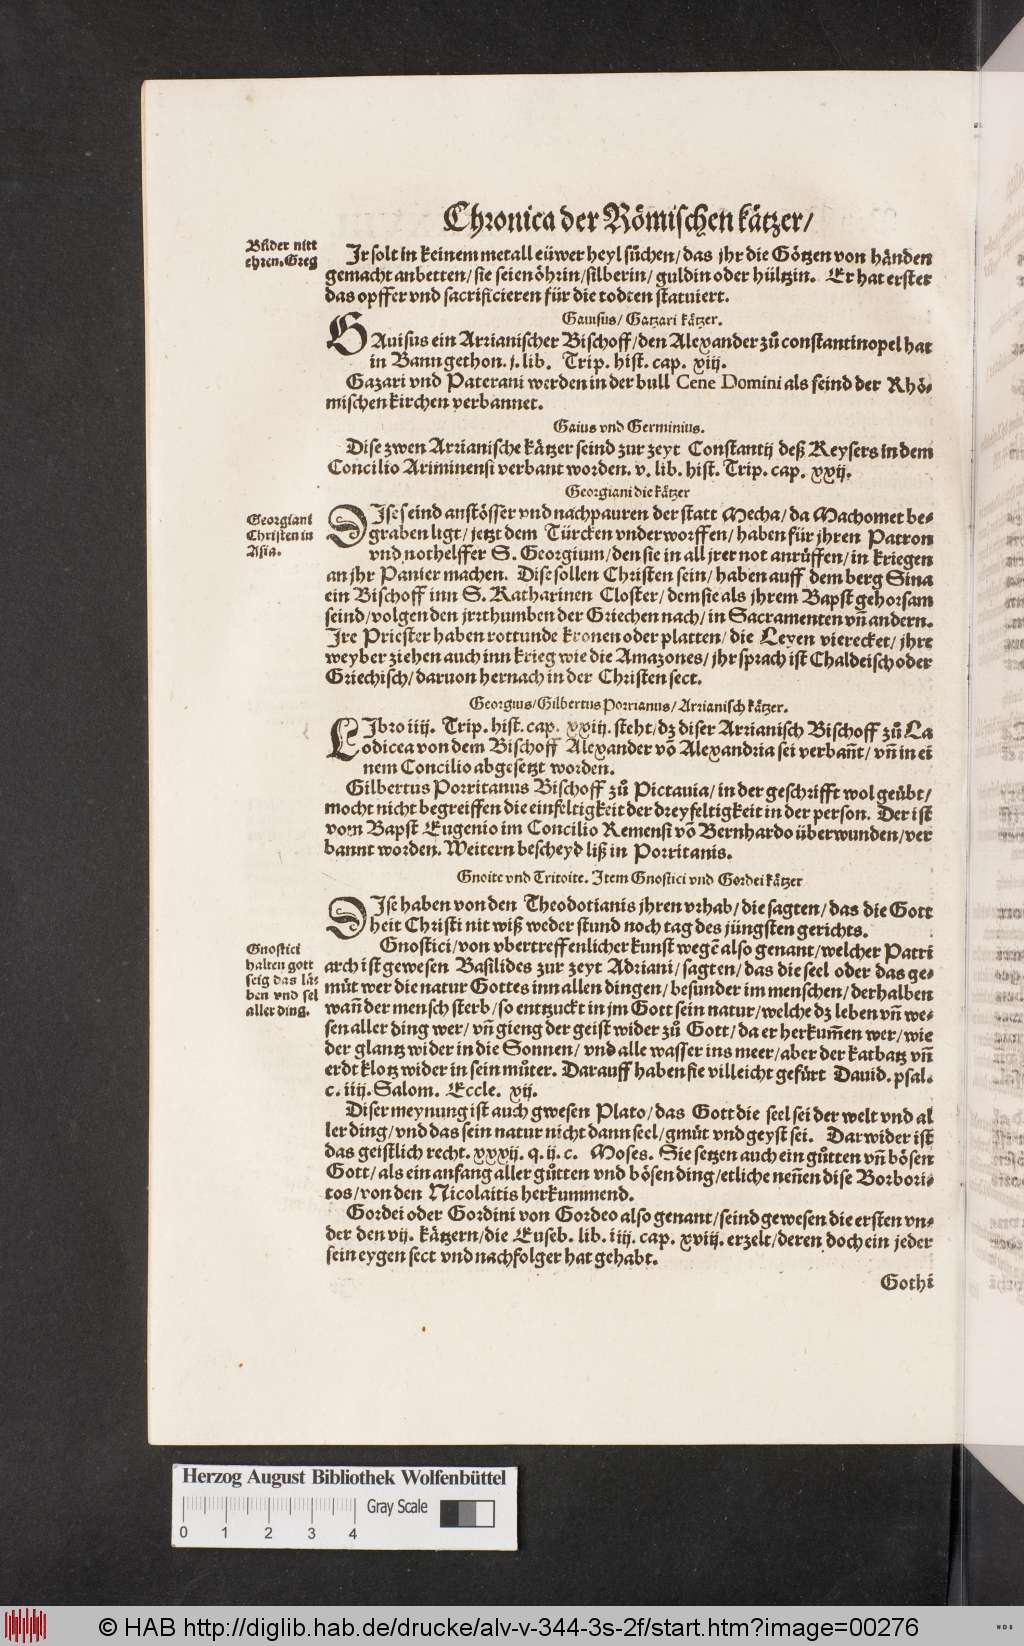 Chronica der Römischen kätzer/
Bilder nitt
ehren. Greg
Jr solt in keinem metall eüwer heyl sůchen/ das jhr die Götzen von händen
gemacht anbetten/ sie seien öhrin/ silberin/ guldin oder hültzin. Er hat erster
das opffer vnd sacrificieren für die todten statuiert.
Gauisus/ Gatzari kätzer.
GAuisus ein Arrianischer Bischoff/ den Alexander zů constantinopel hat
in Bann gethon. j. lib. Trip. hist. cap. xiij.
Gazari vnd Paterani werden in der bull Cene Domini als feind der Rhö-
mischen kirchen verbannet.
Gaius vnd Germinius.
Dise zwen Arrianische kätzer seind zur zeyt Constantij deß Keysers in dem
Concilio Ariminensi verbant worden. v. lib. hist. Trip. cap. xxij.
Georgiani die kätzer
Georgiani
Christen in
Asia.
DJse seind anstösser vnd nachpauren der statt Mecha/ da Machomet be-
graben ligt/ jetzt dem Türcken vnderworffen/ haben für jhren Patron
vnd nothelffer S. Georgium/ den sie in all jrer not anrüffen/ in kriegen
an jhr Panier machen. Dise sollen Christen sein/ haben auff dem berg Sina
ein Bischoff inn S. Katharinen Closter/ dem sie als jhrem Bapst gehorsam
seind/ volgen den jrrthumben der Griechen nach/ in Sacramenten vñ andern.
Jre Priester haben rottunde kronen oder platten/ die Leyen vierecket/ jhre
weyber ziehen auch inn krieg wie die Amazones/ jhr sprach ist Chaldeisch oder
Griechisch/ daruon hernach in der Christen sect.
Georgius/ Gilbertus Porrianus/ Arrianisch kätzer.
LJbro iiij. Trip. hist. cap. xxiij. steht/ dz diser Arrianisch Bischoff zů La
odicea von dem Bischoff Alexander võ Alexandria sei verbañt/ vñ in ei
nem Concilio abgesetzt worden.
Gilbertus Porritanus Bischoff zů Pictauia/ in der geschrifft wol geübt/
mocht nicht begreiffen die einfeltigkeit der dreyfeltigkeit in der person. Der ist
vom Bapst Eugenio im Concilio Remensi võ Bernhardo überwunden/ ver
bannt worden. Weitern bescheyd liß in Porritanis.
Gnoite vnd Tritoite. Jtem Gnostici vnd Gordei kätzer
DJse haben von den Theodotianis jhren vrhab/ die sagten/ das die Gott
heit Christi nit wiß weder stund noch tag des jüngsten gerichts.
Gnostici
halten gott
seig das lä-
ben vnd sel
aller ding.
Gnostici/ von vbertreffenlicher kunst wegẽ also genant/ welcher Patri
arch ist gewesen Basilides zur zeyt Adriani/ sagten/ das die seel oder das ge-
müt wer die natur Gottes inn allen dingen/ besunder im menschen/ derhalben
wañ der mensch sterb/ so entzuckt in jm Gott sein natur/ welche dz leben vñ we-
sen aller ding wer/ vñ gieng der geist wider zů Gott/ da er herkum̃en wer/ wie
der glantz wider in die Sonnen/ vnd alle wasser ins meer/ aber der katbatz vñ
erdtklotz wider in sein můter. Darauff haben sie villeicht gefürt Dauid. psal.
c. iiij. Salom. Eccle. xij.
Diser meynung ist auch gwesen Plato/ das Gott die seel sei der welt vnd al
ler ding/ vnd das sein natur nicht dann seel/ gmüt vnd geyst sei. Darwider ist
das geistlich recht. xxxij. q. ij. c. Moses. Sie setzen auch ein gůtten vñ bösen
Gott/ als ein anfang aller gůtten vnd bösen ding/ etliche neñen dise Borbori-
tos/ von den Nicolaitis herkummend.
Gordei oder Gordini von Gordeo also genant/ seind gewesen die ersten vn-
der den vij. kätzern/ die Euseb. lib. iiij. cap. xviij. erzelt/ deren doch ein jeder
sein eygen sect vnd nachfolger hat gehabt.
Gothi
Herzog August Bibliothek Wolfenbüttel
Gray Scale
0 1 2 3 4
© HAB http://diglib.hab.de/drucke/alv-v-344-3s-2f/start.htm?image=00276